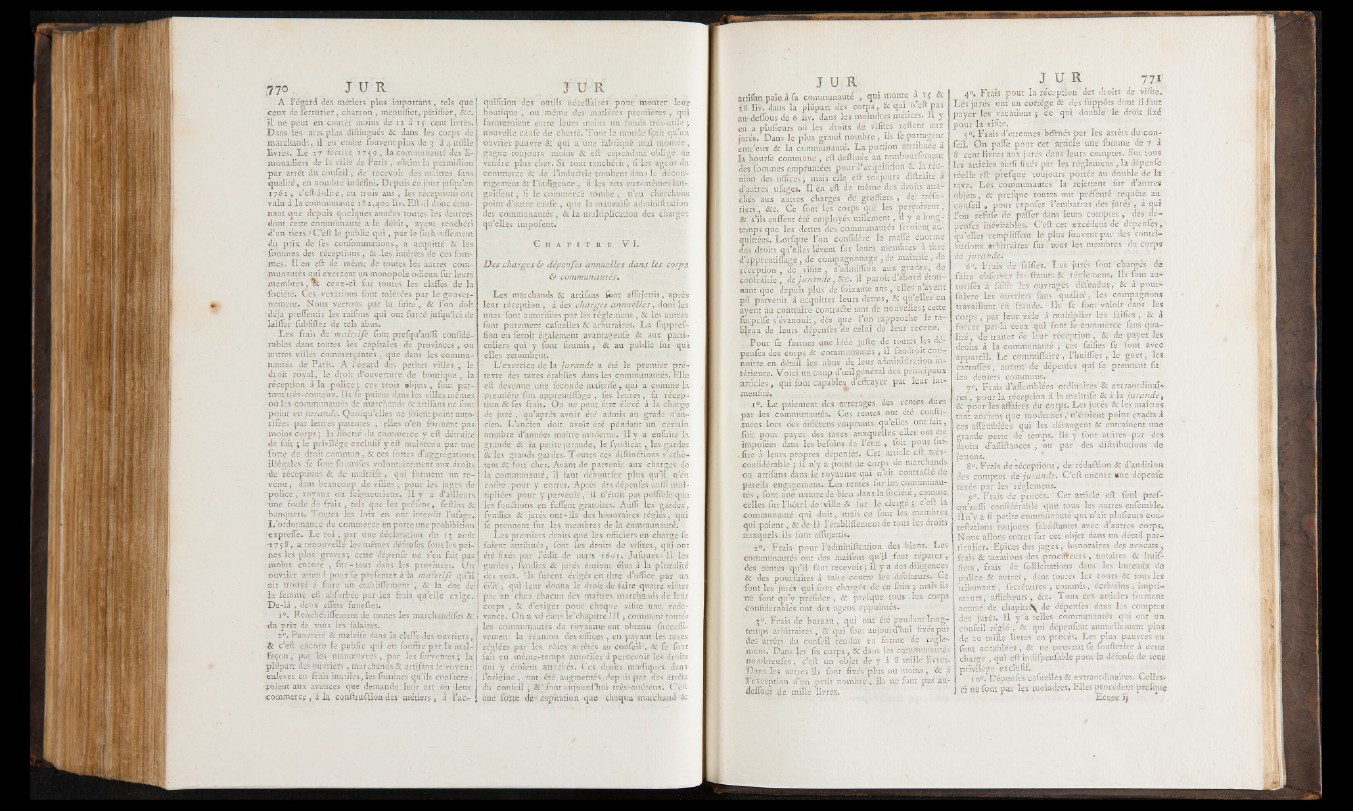 770 JUR
A l'égard des métiers plus importans, tels que
ceux de serrurier, charron, menuisier, pâtissier, &c.
il ne peut en coûter moins de 12 à 15 cent livres.
Dans les arts plus distingués & dans les corps de
marchands, il en coûte souvent plus de 3 à 4 mille
livres. Le 27 février 1759, la communauté des li-
monadiers de la ville de Paris, obtint la permission
par arrêt du conseil, de recevoir des maîtres sans
qualité, en nombre indéfini. Depuis ce jour jusqu'en
1762, c'est-à-dire, en trois ans, les réceptions ont
valu à la communauté 182,400 liv. Est-il donc éton-
nant que depuis quelques années toutes les denrées
dont cette communauté a le débit, ayent renchéri
d'un tiers? C'est le public qui, par le surhaussement
du prix de ses consommations, a acquitté & les
sommes des réceptions, & les intérêts de ces som-
mes. Il en est de même de toutes les autres com-
munautés qui exercent un monopole odieux sur leurs
membres, & ceux-ci sur toutes les classes de la
société. Ces vexations sont tolérées par le gouver-
nement. Nous verrons par la suite, & l'on doit
déja pressentir les raisons qui ont forcé jusqu'ici de
laisser subsister de tels abus.
Les frais de maîtrise sont presqu'aussi considé-
rables dans toutes les capitales de provinces, ou
autres villes commerçantes, que dans les commu-
nautés de Paris. A l'égard des petites villes, le
droit royal, le droit d'ouverture de boutique, la
réception à la police; ces trois objets, sont par-
tout très-couteux. Ils se paient dans les villes mêmes
où les communautés de marchands & artisans ne sont
point en jurande. Quoiqu'elles ne soient point auto-
risées par lettres patentes, elles n'en forment pas
moins corps; la liberté du commerce y est détruite
de fait; le privilége exclusif y est maintenu par une
sorte de droit commun, & ces sortes d'aggrégations
illégales se sont soumises volontairement aux droits
de réceptions & de maîtrise, qui forment un re-
venu, dans beaucoup de villes, pour les juges de
police, royaux ou seigneuriaux. Il y a d'ailleurs
une foule de frais, tels que les présens, festins &
banquets. Toutes les loix en ont interdit l'usage.
L'ordonnance du commerce en porte une prohibition
expresse. Le roi, par une déclaration du 15 août
1758, a renouvellé les mêmes défenses sous les pei-
nes les plus graves; cette dépense ne s'en fait pas
moins encore, sur-tout dans les provinces. Un
ouvrier attend pour se présenter à la maîtrise qu'il
ait trouvé à faire un établissement, & la dot de
sa femme est absorbée par les frais qu'elle exige.
De-là, deux effets funestes.
1°. Renchérissement de toutes les marchandises &
du prix de tous les salaires.
2°. Pauvreté & malaise dans la classe des ouvriers,
& c'est encore le public qui en souffre par la mal-
façon, par les manœuvres, par les survente; la
plûpart des ouvriers, marchands & artisans se voyent
enlever en frais inutiles, les sommes qu'ils consacre-
roient aux avances que demande leur art ou leur
commerce, à la construction des métiers, à l'ac-
JUR
quisition des outils nécessaires pour monter leur
boutique, ou même des matières premières, qui
formeroient entre leurs mains un fonds très-utile;
nouvelle cause de cherté. Tout le monde sçait qu'un
ouvrier pauvre & qui a une fabrique mal montée,
gagne toujours moins & est cependant obligé de
vendre plus cher. Si tout renchérit, si les agens du
commerce & de l'industrie tombent dans le décou-
ragement & l'indigence, si les arts eux-mêmes lan-
guissent, si le commerce tombe, n'en cherchons
point d'autre cause, que la mauvaise administration
des communautés, & la multiplication des charges
qu'elles imposent.
CHAPITRE VI.
Des charges & dépenses annuelles dans les corps
& communautés.
Les marchands & artisans sont assujettis, après
leur réception, à des charges annuelles, dont les
unes sont autorisées par les réglemens, & les autres
sont purement casuelles & arbitraires. La suppres-
sion en seroit également avantageuse & aux parti-
culiers qui y sont soumis, & au public sur qui
elles retombent.
L'exercice de la jurande a été le premier pré-
texte des taxes établies dans les communautés. Elle
est devenue une seconde maîtrise, qui a comme la
première son apprentissage, ses lettres, sa récep-
tion & ses frais. On ne peut être élevé à la charge
de juré, qu'après avoir été admis au grade d'an-
cien. L'ancien doit avoir été pendant un certain
nombre d'années maître moderne. Il y a ensuite la
grande & la petite jurande, le syndicat, les gardes
& les grands gardes. Toutes ces distinctions s'achê-
tent & fort cher. Avant de parvenir aux charges de
la communauté, il faut débourser plus qu'il n'en
coûte pour y entrer. Après des dépenses aussi mul-
tipliées pour y parvenir, il n'étoit pas possible que
les fonctions en fussent gratuites. Aussi les gardes,
syndics & jurés ont-ils des honoraires réglés, qui
se prennent sur les membres de la communauté.
Les premiers droits que les officiers en charge se
soient attribués, sont les droits de visites, qui ont
été fixés par l'édit de mars 1691. Jusques-là les
gardes, syndics & jurés étoient élus à la pluralité
des voix. Ils furent érigés en titre d'office par un
édit, qui leur donna le droit de faire quatre visites
par an chez chacun des maîtres marchands de leur
corps, & d'exiger pour chaque visite une rede-
vance. On a vû dans le chapitre III, comment toutes
les communautés du royaume ont obtenu successi-
vement la réunion des offices, en payant les taxes
réglées par les rôles arrêtés au conseil, & se sont
fait en même-temps autoriser à percevoir les droits
qui y étoient attachés. Ces droits modiques dans
l'origine, ont été augmentés depuis par des arrêts
du conseil; & sont aujourd'hui très-onéreux. C'est
une sorte de capitation que chaque marchand &
JUR
artisan paie à sa communauté, qui monte à 15 &
18 liv. dans la plûpart des corps, & qui n'est pas
au-dessous de 6 liv. dans les moindres métiers. Il y
en a plusieurs où les droits de visites restent aux
jurés. Dans le plus grand nombre, ils se partagent
entr'eux & la communauté. La portion attribuée à
la bourse commune, est destinée au remboursement
des sommes empruntées pour l'acquisition & la réu-
nion des offices; mais elle est toujours distraite à
d'autres usages. Il en est de même des droits atta-
chés aux autres charges de greffiers, de tréso-
riers, &c. Ce sont les corps qui les perçoivent,
& s'ils eussent été employés utilement, il y a long-
temps que les dettes des communautés seroient ac-
quittées. Lorsque l'on considère la masse énorme
des droits qu'elles lèvent sur leurs membres à titre
d'apprentissage, de compagnonage, de maîtrise, de
réception, de visite, d'admission aux grades, de
confrairie, de jurande, &c. il paroît d'abord éton-
nant que depuis plus de soixante ans, elles n'ayent
pû parvenir à acquitter leurs dettes, & qu'elles en
ayent au contraire contracté tant de nouvelles; cette
surprise s'évanouit, dès que l'on rapproche le ta-
bleau de leurs dépenses de celui de leur recette.
Pour se former une idée juste de toutes les dé-
penses des corps & communautés, il faudroit con-
noître en détail les abus de leur administration in-
térieure. Voici un coup d'œil général des principaux
articles, qui sont capables d'effrayer par leur im-
mensité.
1°. Le paiement des arrérages des rentes dues
par les communautés. Ces rentes ont été consti-
tuées lors des différens emprunts qu'elles ont fait,
soit pour payer des taxes auxquelles elles ont été
imposées dans les besoins de l'état, soit pour suf-
fire à leurs propres dépenses. Cet article est très-
considérable; il n'y a point de corps de marchands
ou artisans dans le royaume qui n'ait contracté de
pareils engagemens. Les rentes sur les communau-
tés, sont une nature de bien dans la société, comme
celles sur l'hôtel de ville & sur le clergé; c'est la
communauté qui doit, mais ce sont les membres
qui paient, & de-là l'établissement de tous les droits
auxquels ils sont assujettis.
2°. Frais pour l'administration des biens. Les
communautés ont des maisons qu'il faut réparer,
des rentes qu'il faut recevoir; il y a des diligences
& des poursuites à faire contre les débiteurs. Ce
sont les jurés qui sont chargés de ce soin; mais ils
ne font qu'y présider, & presque tous les corps
considérables ont des agens appointés.
3°. Frais de bureau, qui ont été pendant long-
temps arbitraires, & qui sont aujourd'hui fixés par
des arrêts du conseil rendus en forme de régle-
mens. Dans les six corps, & dans les communautés
nombreuses, c'est un objet de 7 à 8 mille livres.
Dans les autres ils sont fixés plus ou moins, & à
l'exception d'un petit nombre, ils ne sont pas au-
dessous de mille livres.
JUR 771
4°. Frais pour la réception des droits de visite.
Les jurés ont un cortége & des suppôts dont il faut
payer les vacations; ce qui double le droit fixé
pour la visite.
5°. Frais d'étrennes bornés par les arrêts du con-
seil. On passe pour cet article une somme de 7 à
8 cent livres aux jurés dans leurs comptes. Sur tous
les articles ainsi fixés par les réglemens, la dépense
réelle est presque toujours portée au double de la
taxe. Les communautés la rejettent sur d'autres
objets, & presque toutes ont présenté requête au
conseil, pour exposer l'embarras des jurés, à qui
l'on refuse de passer dans leurs comptes, des dé-
penses inévitables. C'est cet excédent de dépenses,
qu'elles prélevent le plus souvent par des contri-
butions arbitraires sur tous les membres du corps
de jurande.
6°. Frais de saisies. Les jurés sont chargés de
faire observer les statuts & réglemens. Ils sont au-
torisés à saisir les ouvrages défendus, & à pour-
suivre les ouvriers sans qualité, les compagnons
travaillant en fraude. Ils se font valoir dans les
corps, par leur zèle à multiplier les saisies, & à
forcer par-là ceux qui font le commerce sans qua-
lité, de traiter de leur réception, & de payer les
droits à la communauté, ces saisies se font avec
appareil. Le commissaire, l'huissier, le guet, les
carrosses, autant de dépenses qui se prennent sur
les deniers communs.
7°. Frais d'assemblées ordinaires & extraordinai-
res, pour la réception à la maîtrise & à la jurande,
& pour les affaires du corps. Les jurés & les maîtres
tant anciens que modernes, n'étoient point exacts à
ces assemblées qui les dérangent & entraînent une
grande perte de temps. Ils y sont attirés par des
droits d'assistances, ou par des distributions de
jettons.
8°. Frais de réceptions, de rédaction & d'audition
des comptes de jurande. C'est encore une dépense
taxée par les réglemens.
9°. Frais de procès. Cet article est seul pres-
qu'aussi considérable que tous les autres ensemble.
Il n'y a si petite communauté qui n'ait plusieurs con-
testations toujours subsistantes avec d'autres corps.
Nous allons entrer sur cet objet dans un détail par-
ticulier. Epices des juges, honoraires des avocats,
frais & taxations des procureurs, notaires & huis-
siers, frais de sollicitations dans les bureaux de
police & autres, dans toutes les cours & tous les
tribunaux, secrétaires, commis, écrivains, impri-
meurs, afficheurs, &c. Tous ces articles forment
autant de chapitres de dépenses dans les comptes
des jurés. Il y a telles communautés qui ont un
conseil réglé, & qui dépensent annuellement plus
de 10 mille livres en procès. Les plus pauvres en
sont accablées, & ne peuvent se soustraire à cette
charge, qui est indispensable pour la défense de leur
privilége exclusif.
10°. Dépenses casuelles & extraordinaires. Celles-
ci ne sont pas les moindres. Elles procèdent presque
Eeeee ij